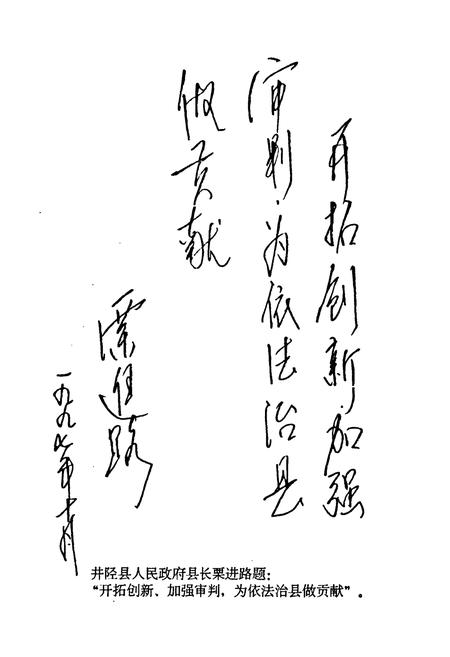 开拓创新加强
审判.为依法治县
做贡献
栗进路
一九九七年十月
井陉县人民政府县长栗进路题：
“开拓创新、加强审判，为依法治县做贡献”。